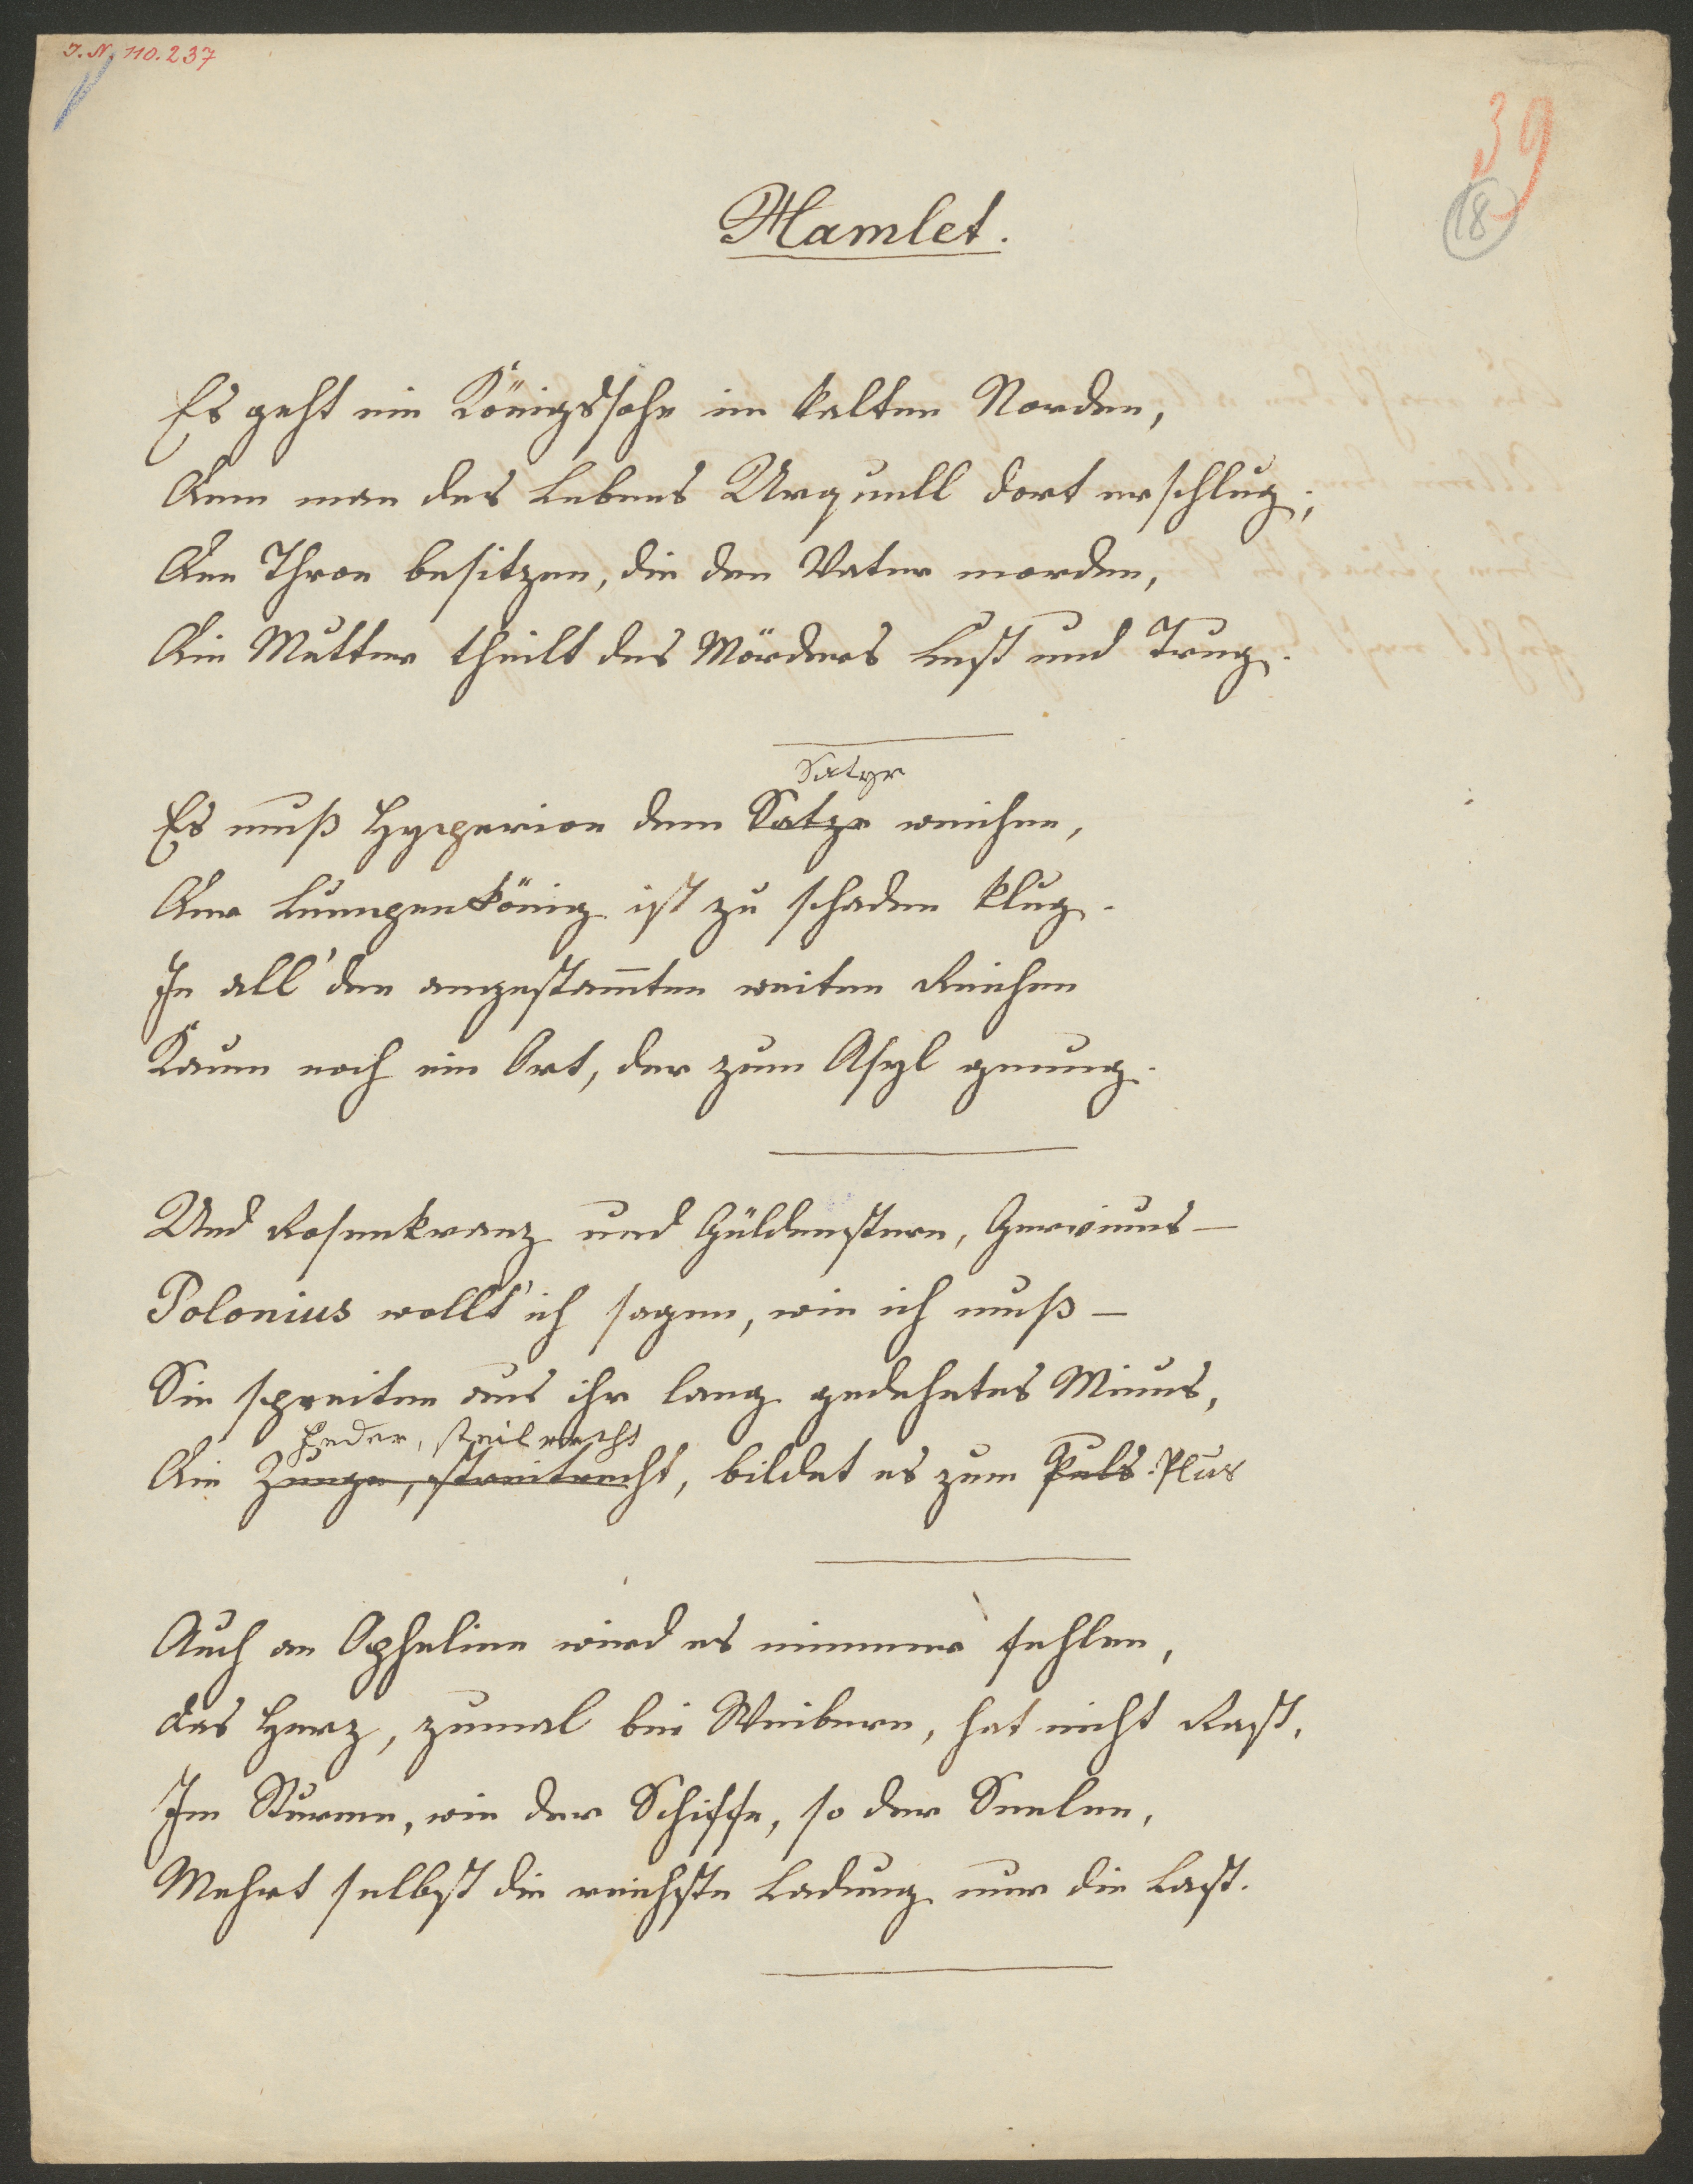 J. N. 110.237
39
18
Hamlet.
Es geht ein Königssohn im kalten Norden,
Dem man des Lebens Urquell dort erschlug;
Den Thron besitzen, die den Vater morden,
Die Mutter theilt des Mörders Lust und Trug.
Satyr
Es muß Hyperion dem Satyr weichen,
Der Lumpenkönig ist zu schaden klug.
In all' den angestam̄ten weiten Reichen
Kaum noch ein Ort, der zum Asyl genung.
Und Rosenkranz und Güldenstern, Gervinus —
Polonius wollt' ich sagen, wie ich muß —
Sie spreiten aus ihr lang gedehntes Minus,
Feder, steilrecht
Die Zunge, streitrecht, bildet es zum Puls. Plus
Auch an Ophelien wird es nimmer fehlen,
Das Herz, zumal bei Weibern, hat nicht Rast,
Im Sturme, wie der Schiffe, so der Seelen,
Mehrt selbst die reichste Ladung nur die Last.